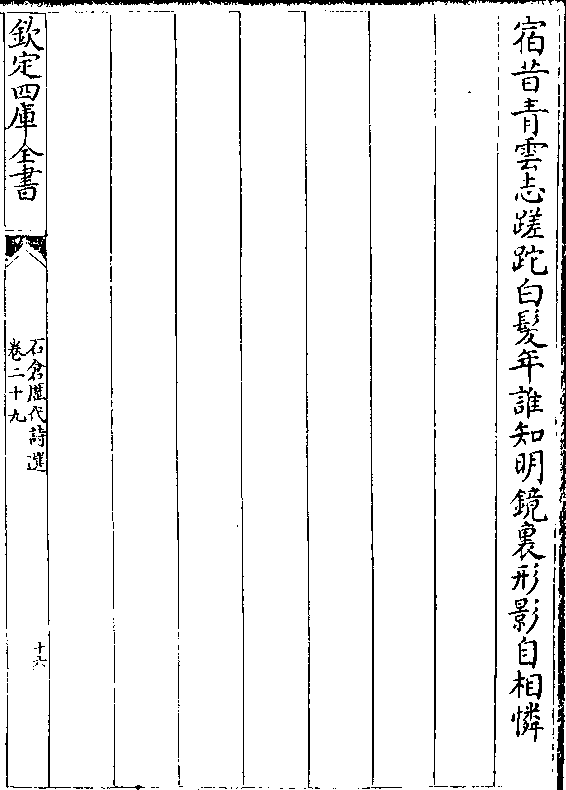 宿昔青雲志蹉跎白髮年誰知明鏡裏形影自相憐
欽定四庫全書
石倉歷代詩選
卷二十九
十六